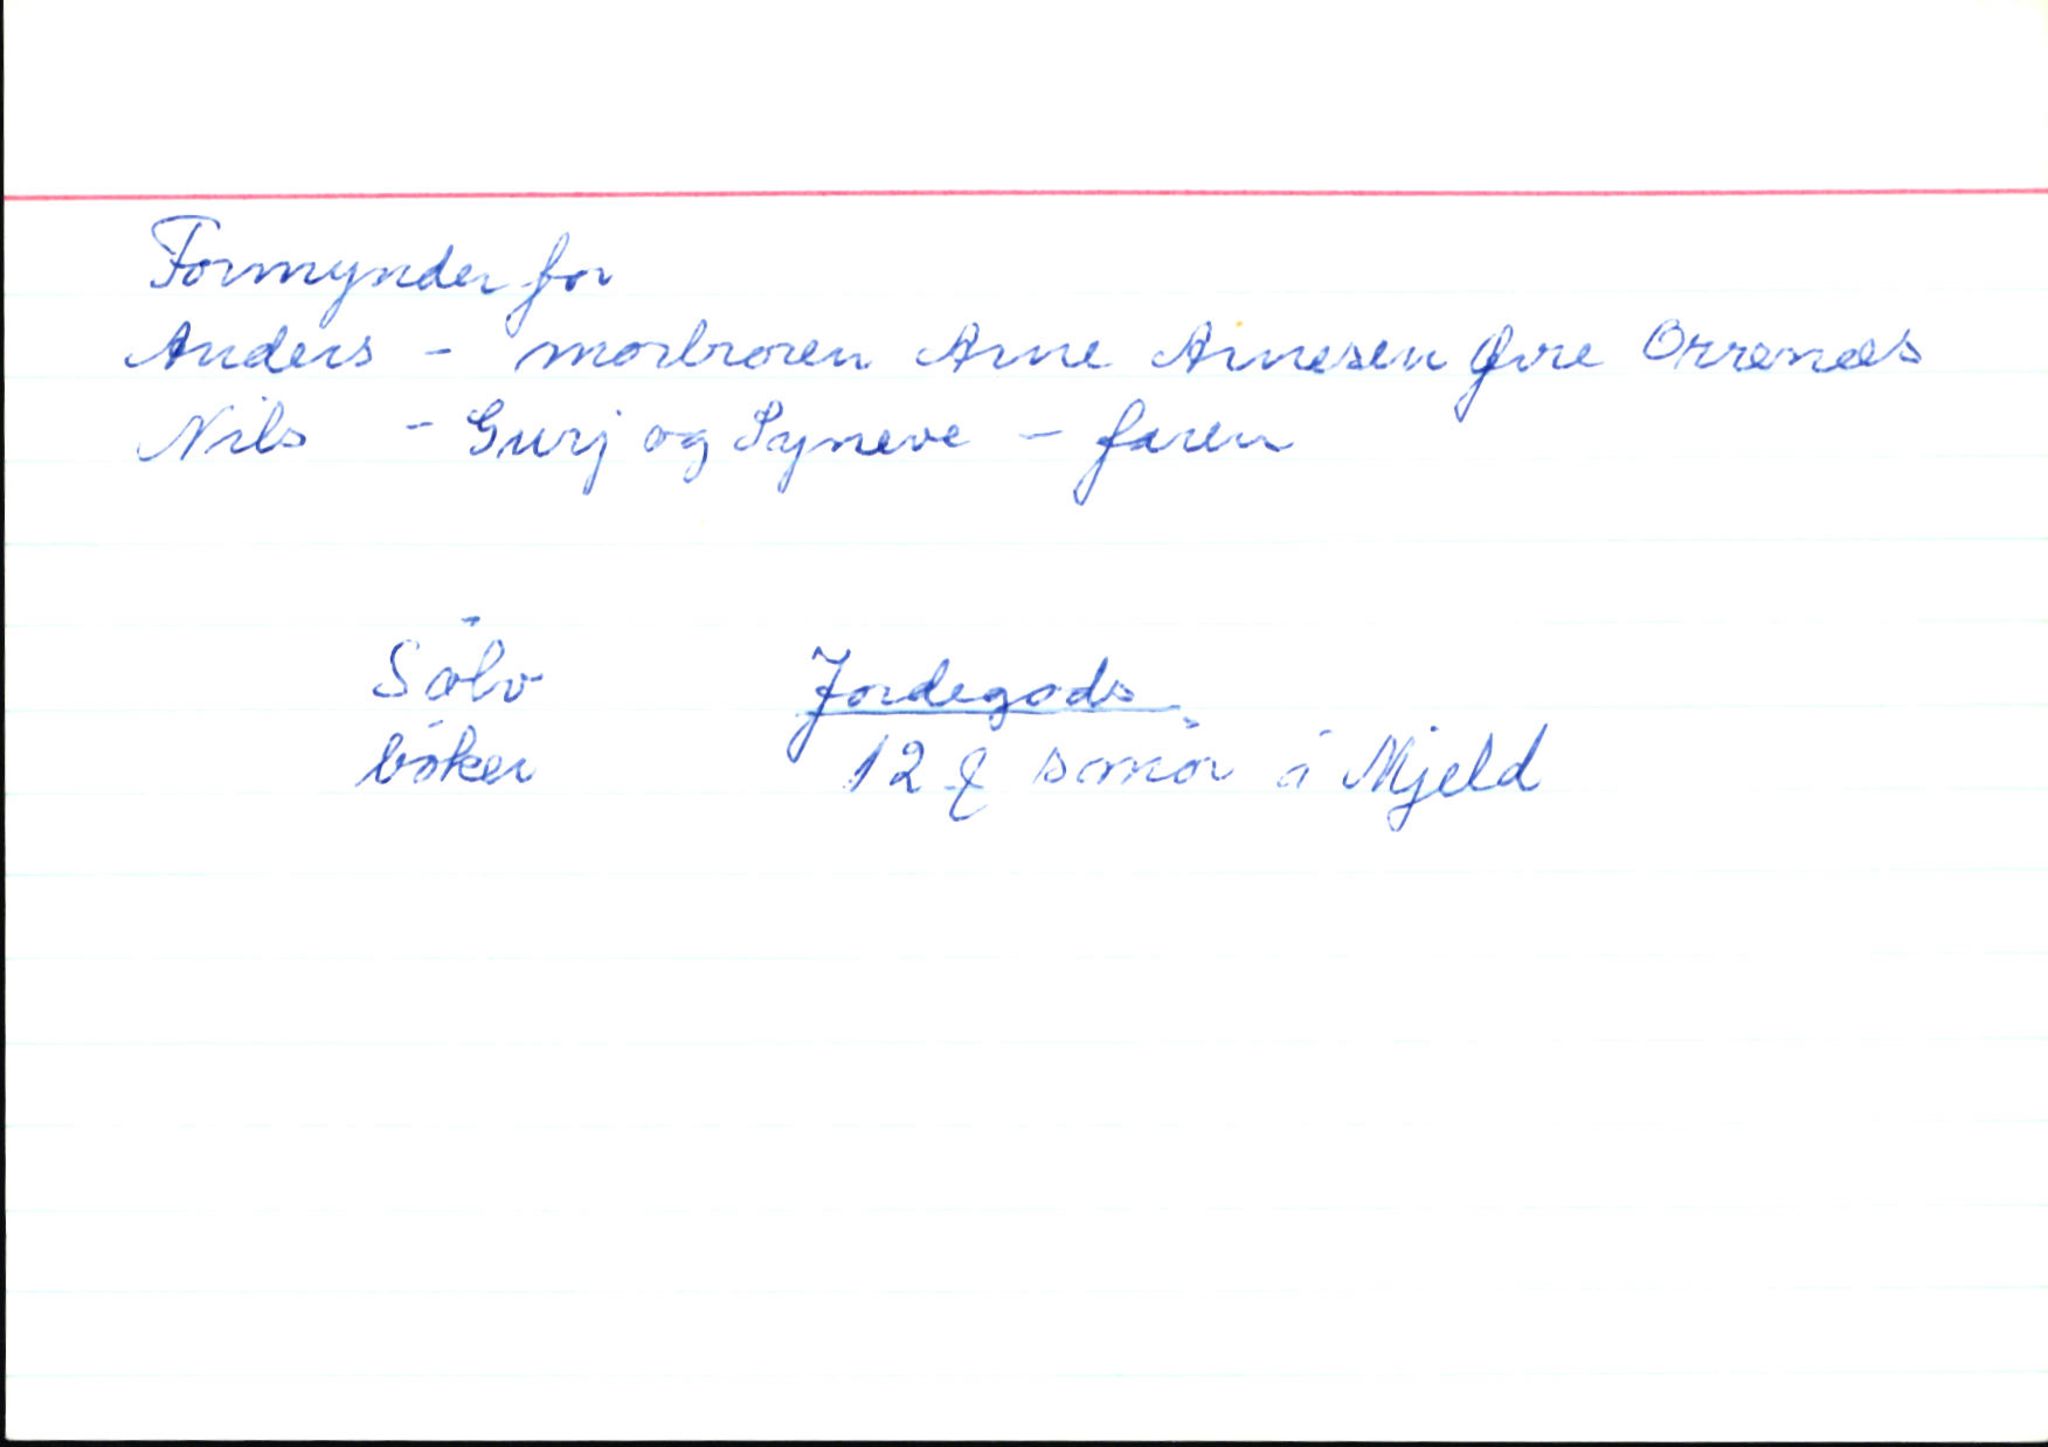 Formynder for
Anders - morbroren Arne Arnesen Øvre Orrenæs
Nils - Gurj og Syneve - faren
Sölv Jordegods
böker 12 smör i Mjeld